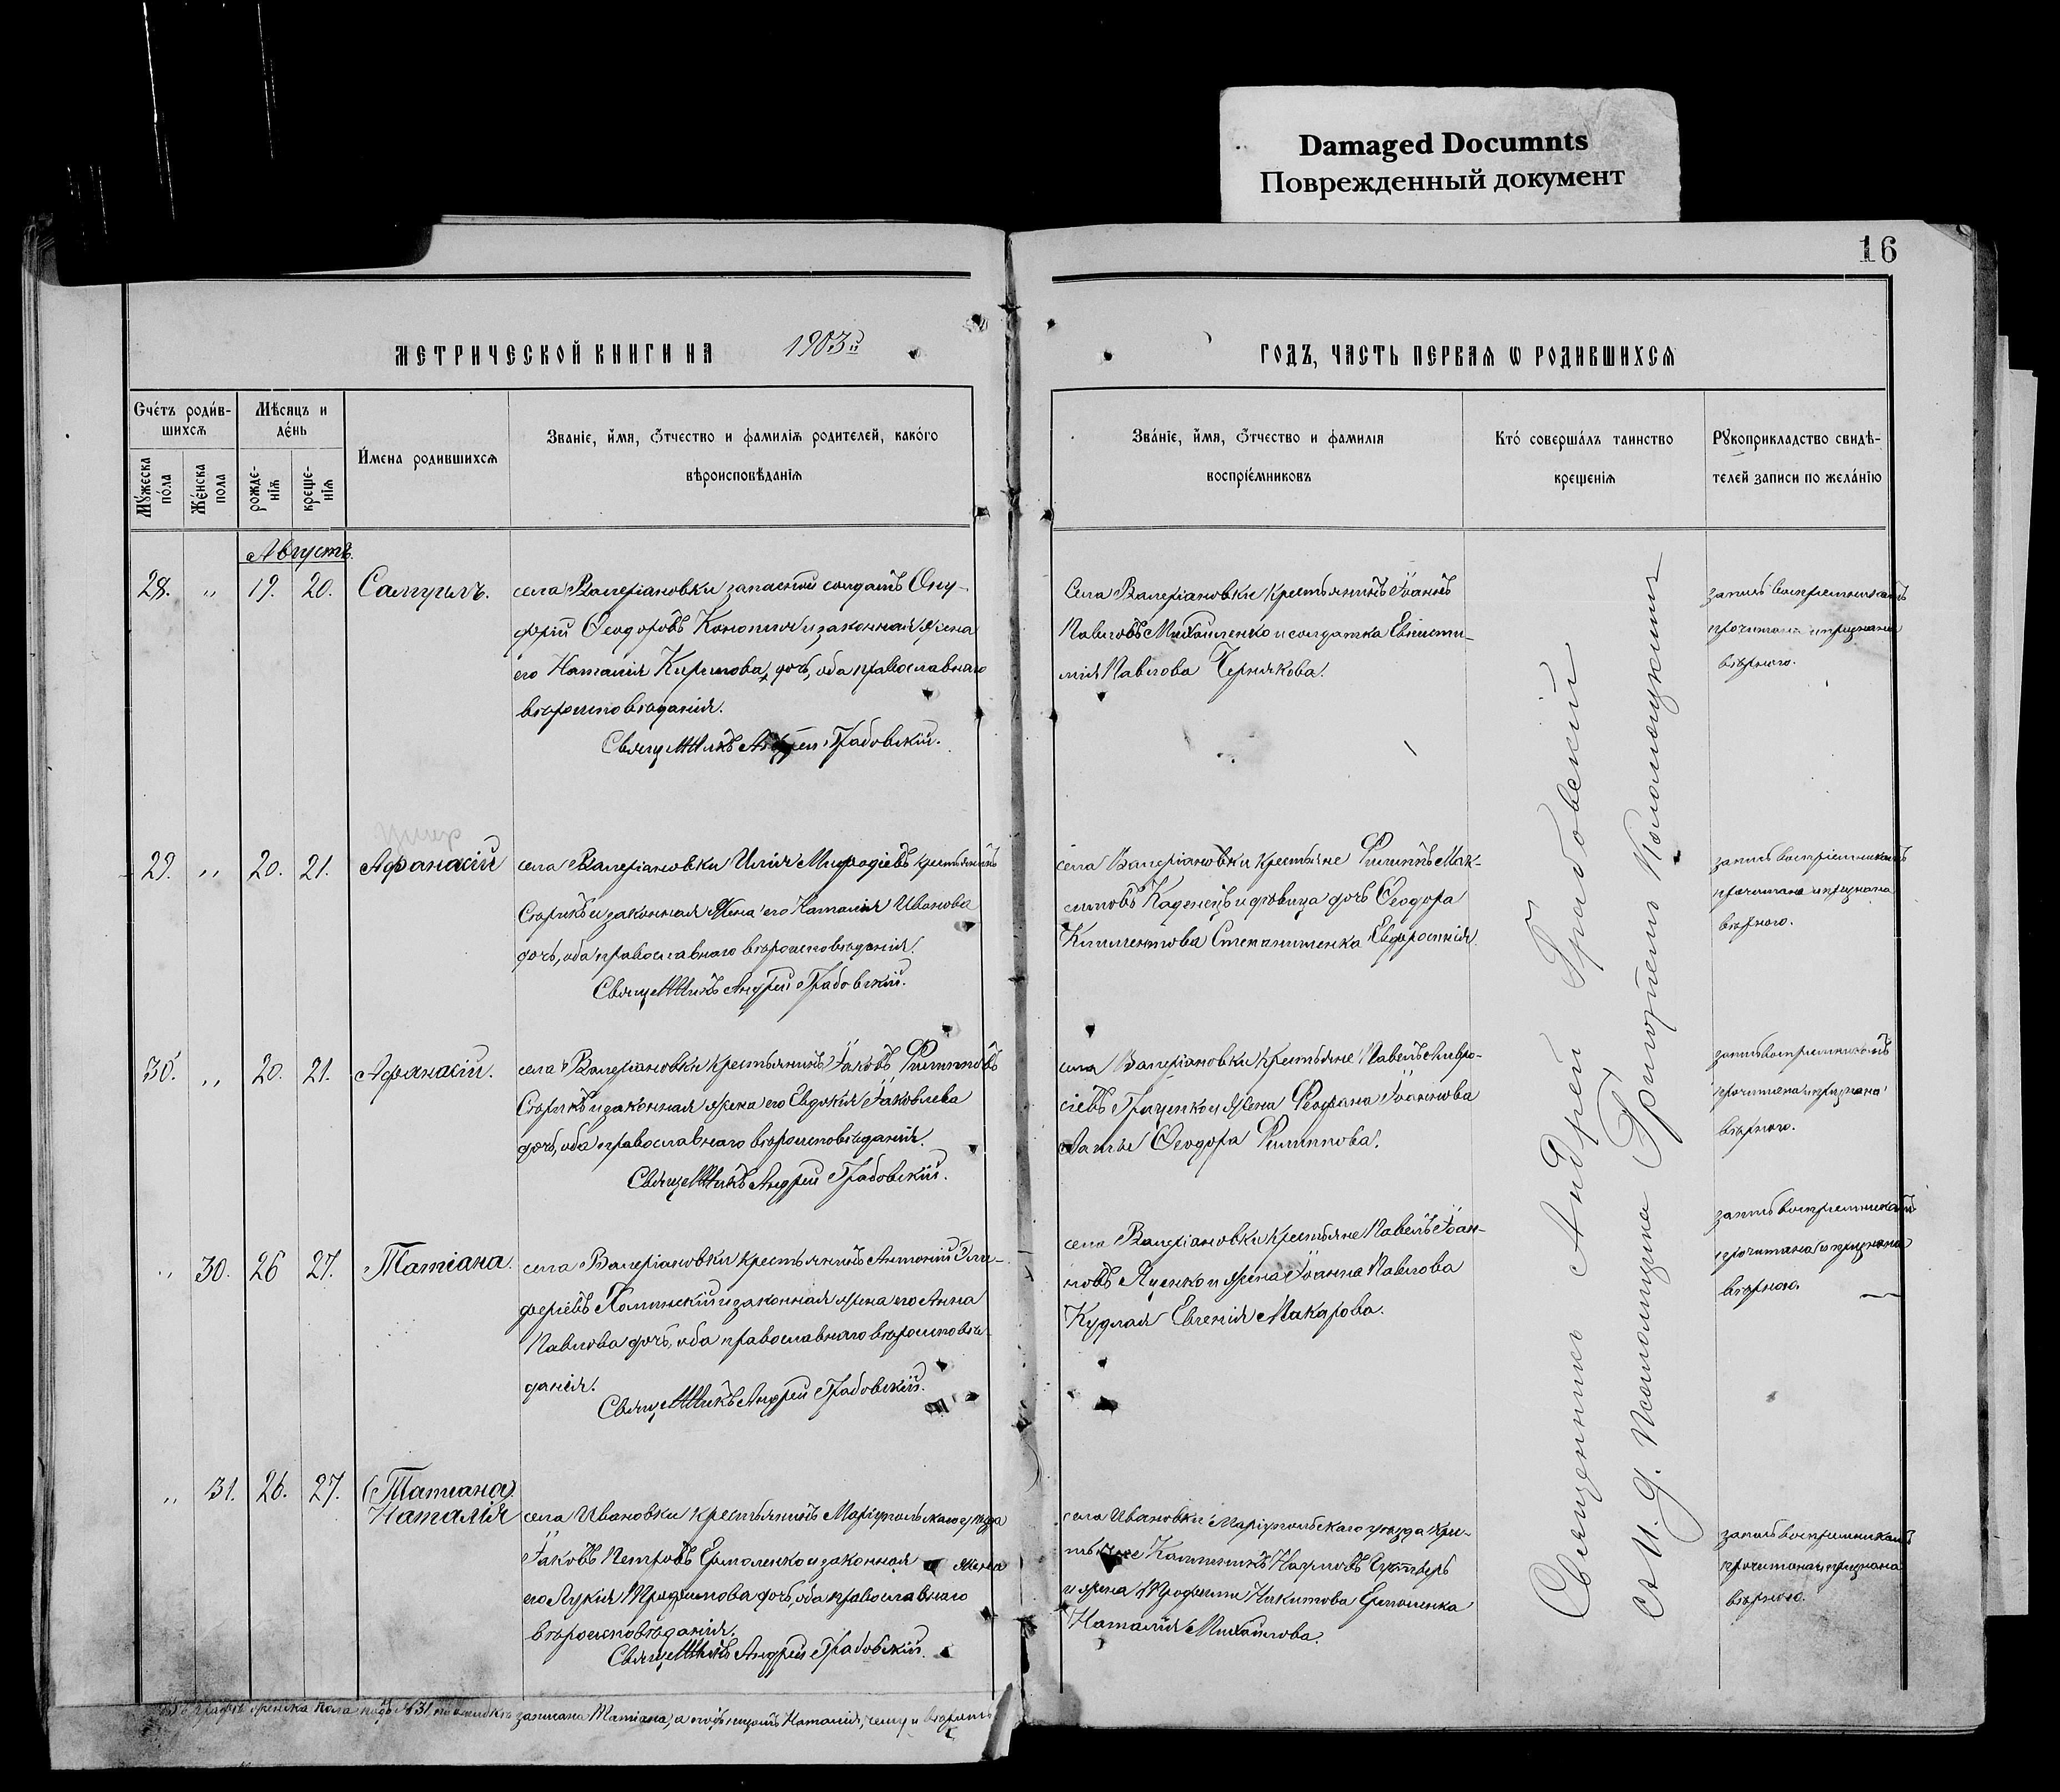 Damaged Documnts
Поврежденный документ
16
МЕТРИЧЕСКОЙ КНИГИ НА 1903й
ГОДЪ, ЧАСТЬ ПЕРВАѦ Ѡ РОДИВШИХСѦ
Счетъ родив-
шихсѧ
Мужеска
пола
Женска
пола
Мѣсяцъ и
день
рожде-
нїѧ
креще-
нїѧ
Имена родившихсѧ
Званіе, имя, отчество и фамилія родителей, какого
вѣроисповѣданія
Званіе, имя, отчество и фамилія
воспріемниковъ
Кто совершалъ таинство
крещенія
Рукоприкладство свидѣ-
телей записи по желанію
Августъ.
28. " 19. 20. Самуилъ.
села Валеріановки запасной солдатъ Ону-
фрій Ѳеодоровъ и законная жена
его Наталія Кирилова дочь, оба православнаго
вѣроисповѣданія.
Священникъ Андрей Грабовскій.
Села Валеріановки крестьянинъ Іоаннъ
Павловъ Михайленко и солдатка
Павлова Чернякова.
запись воспріемникамъ
прочитана и признана
вѣрною.
умер
29. " 20. 21. Афанасій
села Валеріановки Илія Мифодіевъ крестьянинъ
Старикъ и законная жена его Наталія Иванова
дочь, оба православнаго вѣроисповѣданія.
Священникъ Андрей Грабовскій.
села Валеріановки крестьяне Филиппъ Мак-
симовъ и дѣвица дочь Ѳеодора
Климентова Степаниченка Евфросинія
запись воспріемникамъ
прочитана и признана
вѣрною.
30. " 20. 21. Афанасій.
села Валеріановки крестьянинъ Іаковъ Филипповъ
Старикъ и законная жена его Евдокія Іаковлева
дочь, оба православнаго вѣроисповѣданія.
Священникъ Андрей Грабовскій.
села Валеріановки крестьяне Павелъ Амвро-
сіевъ Гриценко и жена Феофана Іоаннова
Ѳеодора Филиппова.
запись воспріемникамъ
прочитана и признана
вѣрною.
" 30. 26 27. Татіана.
села Валеріановки крестьянинъ Антоній
и законная жена его Анна
Павлова дочь, оба православнаго вѣроисповѣ-
данія.
Священникъ Андрей Грабовскій.
села Валеріановки крестьяне Павелъ Іоан-
новъ Яценко и жена Іоанна Павлова
Кудлая Евгенія Макарова.
запись воспріемникамъ
прочитана и признана
вѣрною.
" 31. 26. 27. (Татіана)
Наталія
села Ивановки крестьянинъ Маріупольскаго уѣзда
Іаковъ Петровъ Ермоленко и законная жена
его Лукія Трофимова дочь, оба православнаго
вѣроисповѣданія.
Священникъ Андрей Грабовскій.
села Ивановки Маріупольскаго уѣзда кре-
стьяне Наумовъ
и жена Трофима Никитова Ермоленка
Наталія Михайлова.
запись воспріемникамъ
прочитана и признана
вѣрною.
Священникъ Андрей Грабовскій
съ И. д. Псаломщика Григоріемъ
графѣ женска пола подъ №31 по ошибкѣ записана Татіана, а слѣдуетъ Наталія, чему и вѣрить